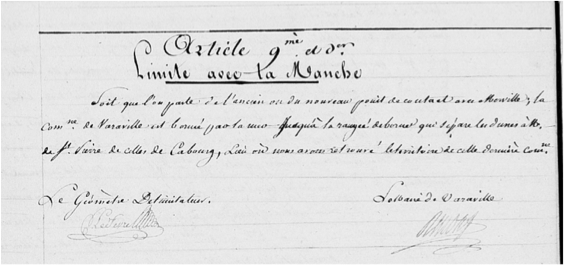 Article 9me et der
Limite avec La Manche
Soit que l'on parte de l'ancien ou du nouveau point de contact avec Merville, la
comne de Varaville est bornée par la mer jusqu'à la rangée de bornes qui sépare les dunes à Mr
de St Pierre de celles de Cabourg, lieu où nous avons retrouvé le territoire de cette dernière comne
Le Géomètre Délimitateur. Le Maire de Varaville